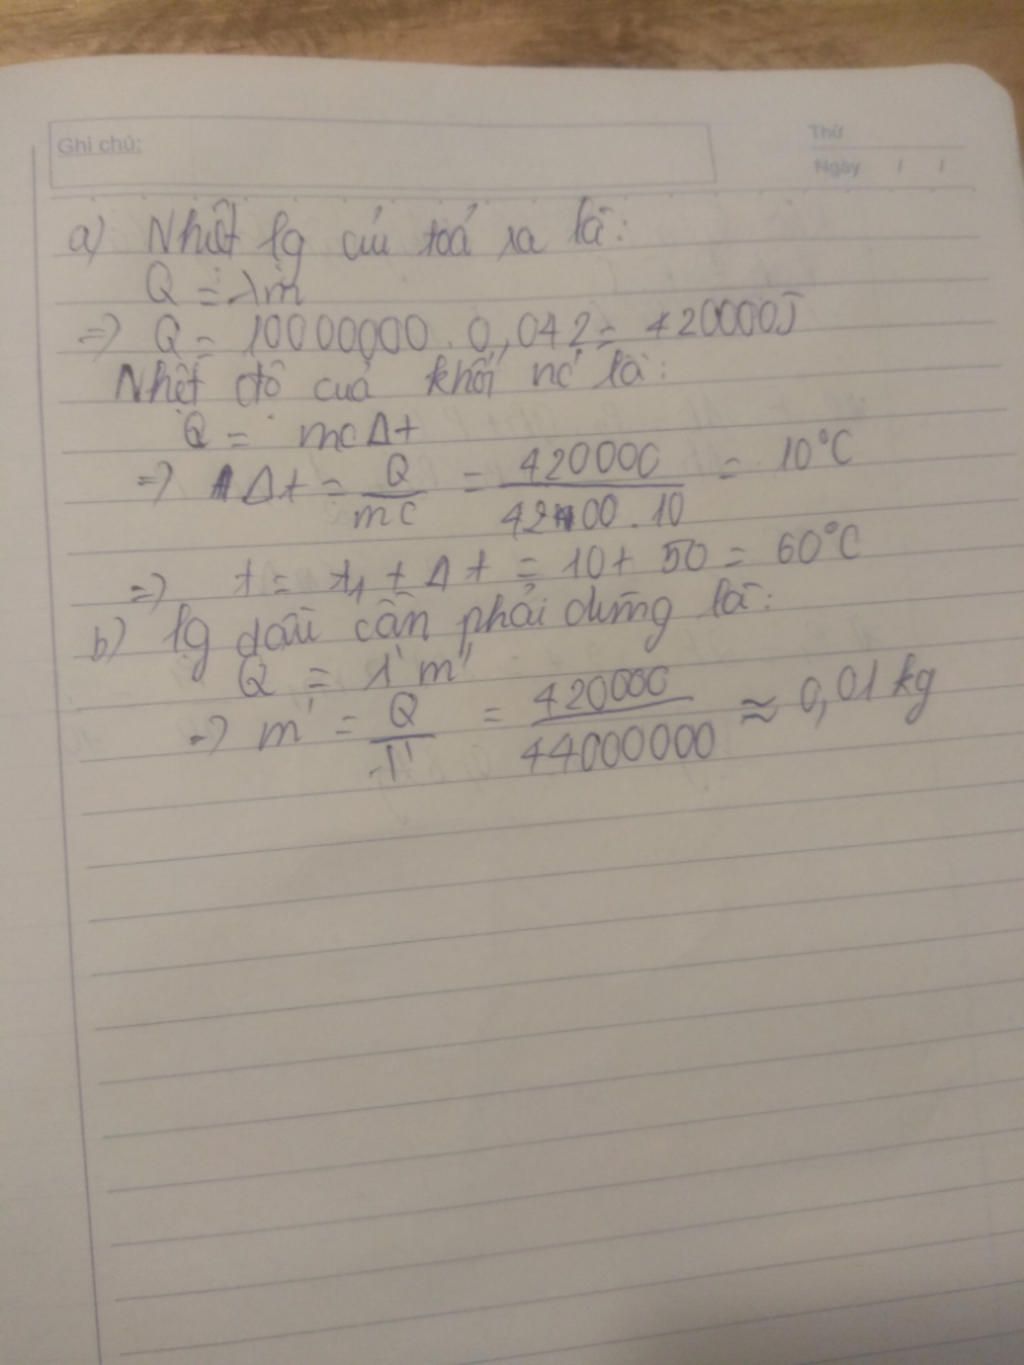 Ghi chú:
Thứ
Ngày / /
a) Nhiệt lg củi toả ra là:
Q = λm
=> Q = 10000000 . 0,042 = 420000J
Nhiệt độ của khối nc là:
Q = mcΔt
=> Δt = Q/mc = 420000/4200.10 = 10°C
=> t = t₁ + Δt = 10 + 50 = 60°C
b) lg dầu cần phải dùng là:
Q = λ'm'
=> m' = Q/λ' = 420000/44000000 ≈ 0,01 kg